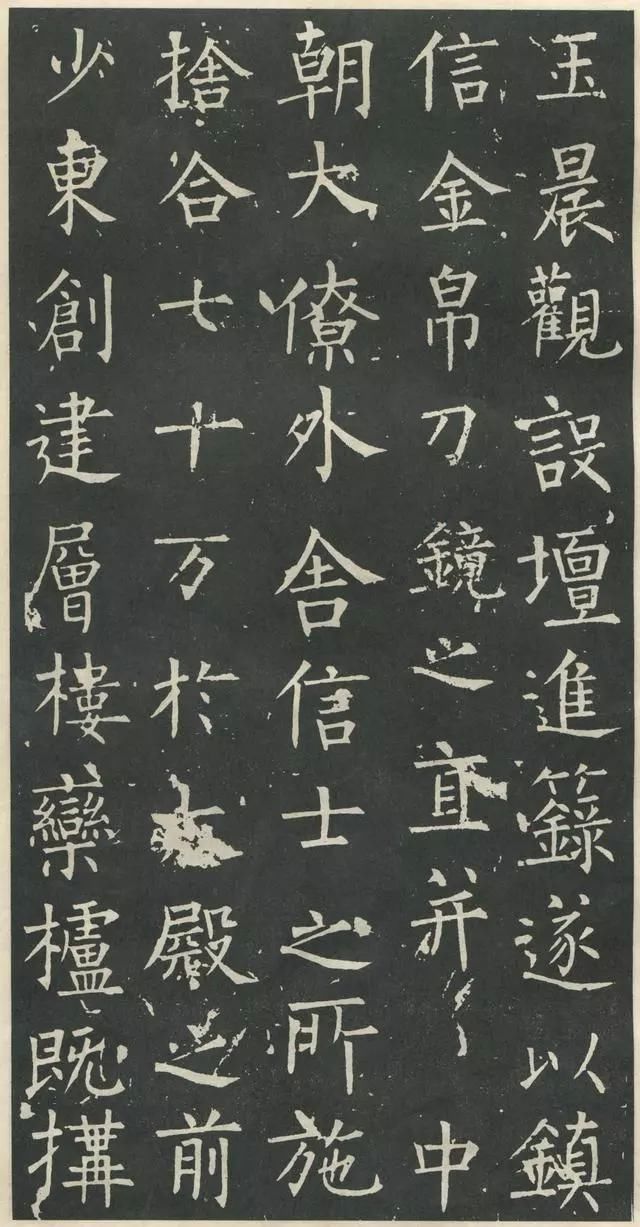 玉晨觀設壇進籙遂以鎮
信金帛刀鏡之直并中
朝大僚外舍信士之所施
捨合七十万於殿之前
少東創建層樓欒櫨既搆